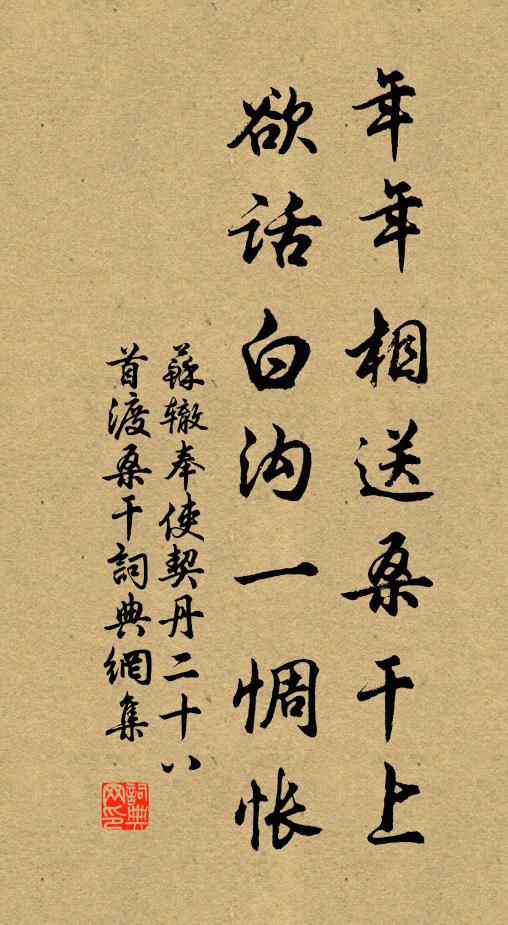 年年相送桑干上
欲话白沟一惆怅
蘇辙奉使契丹二十八
首渡桑干詞典網集
詞典
网印